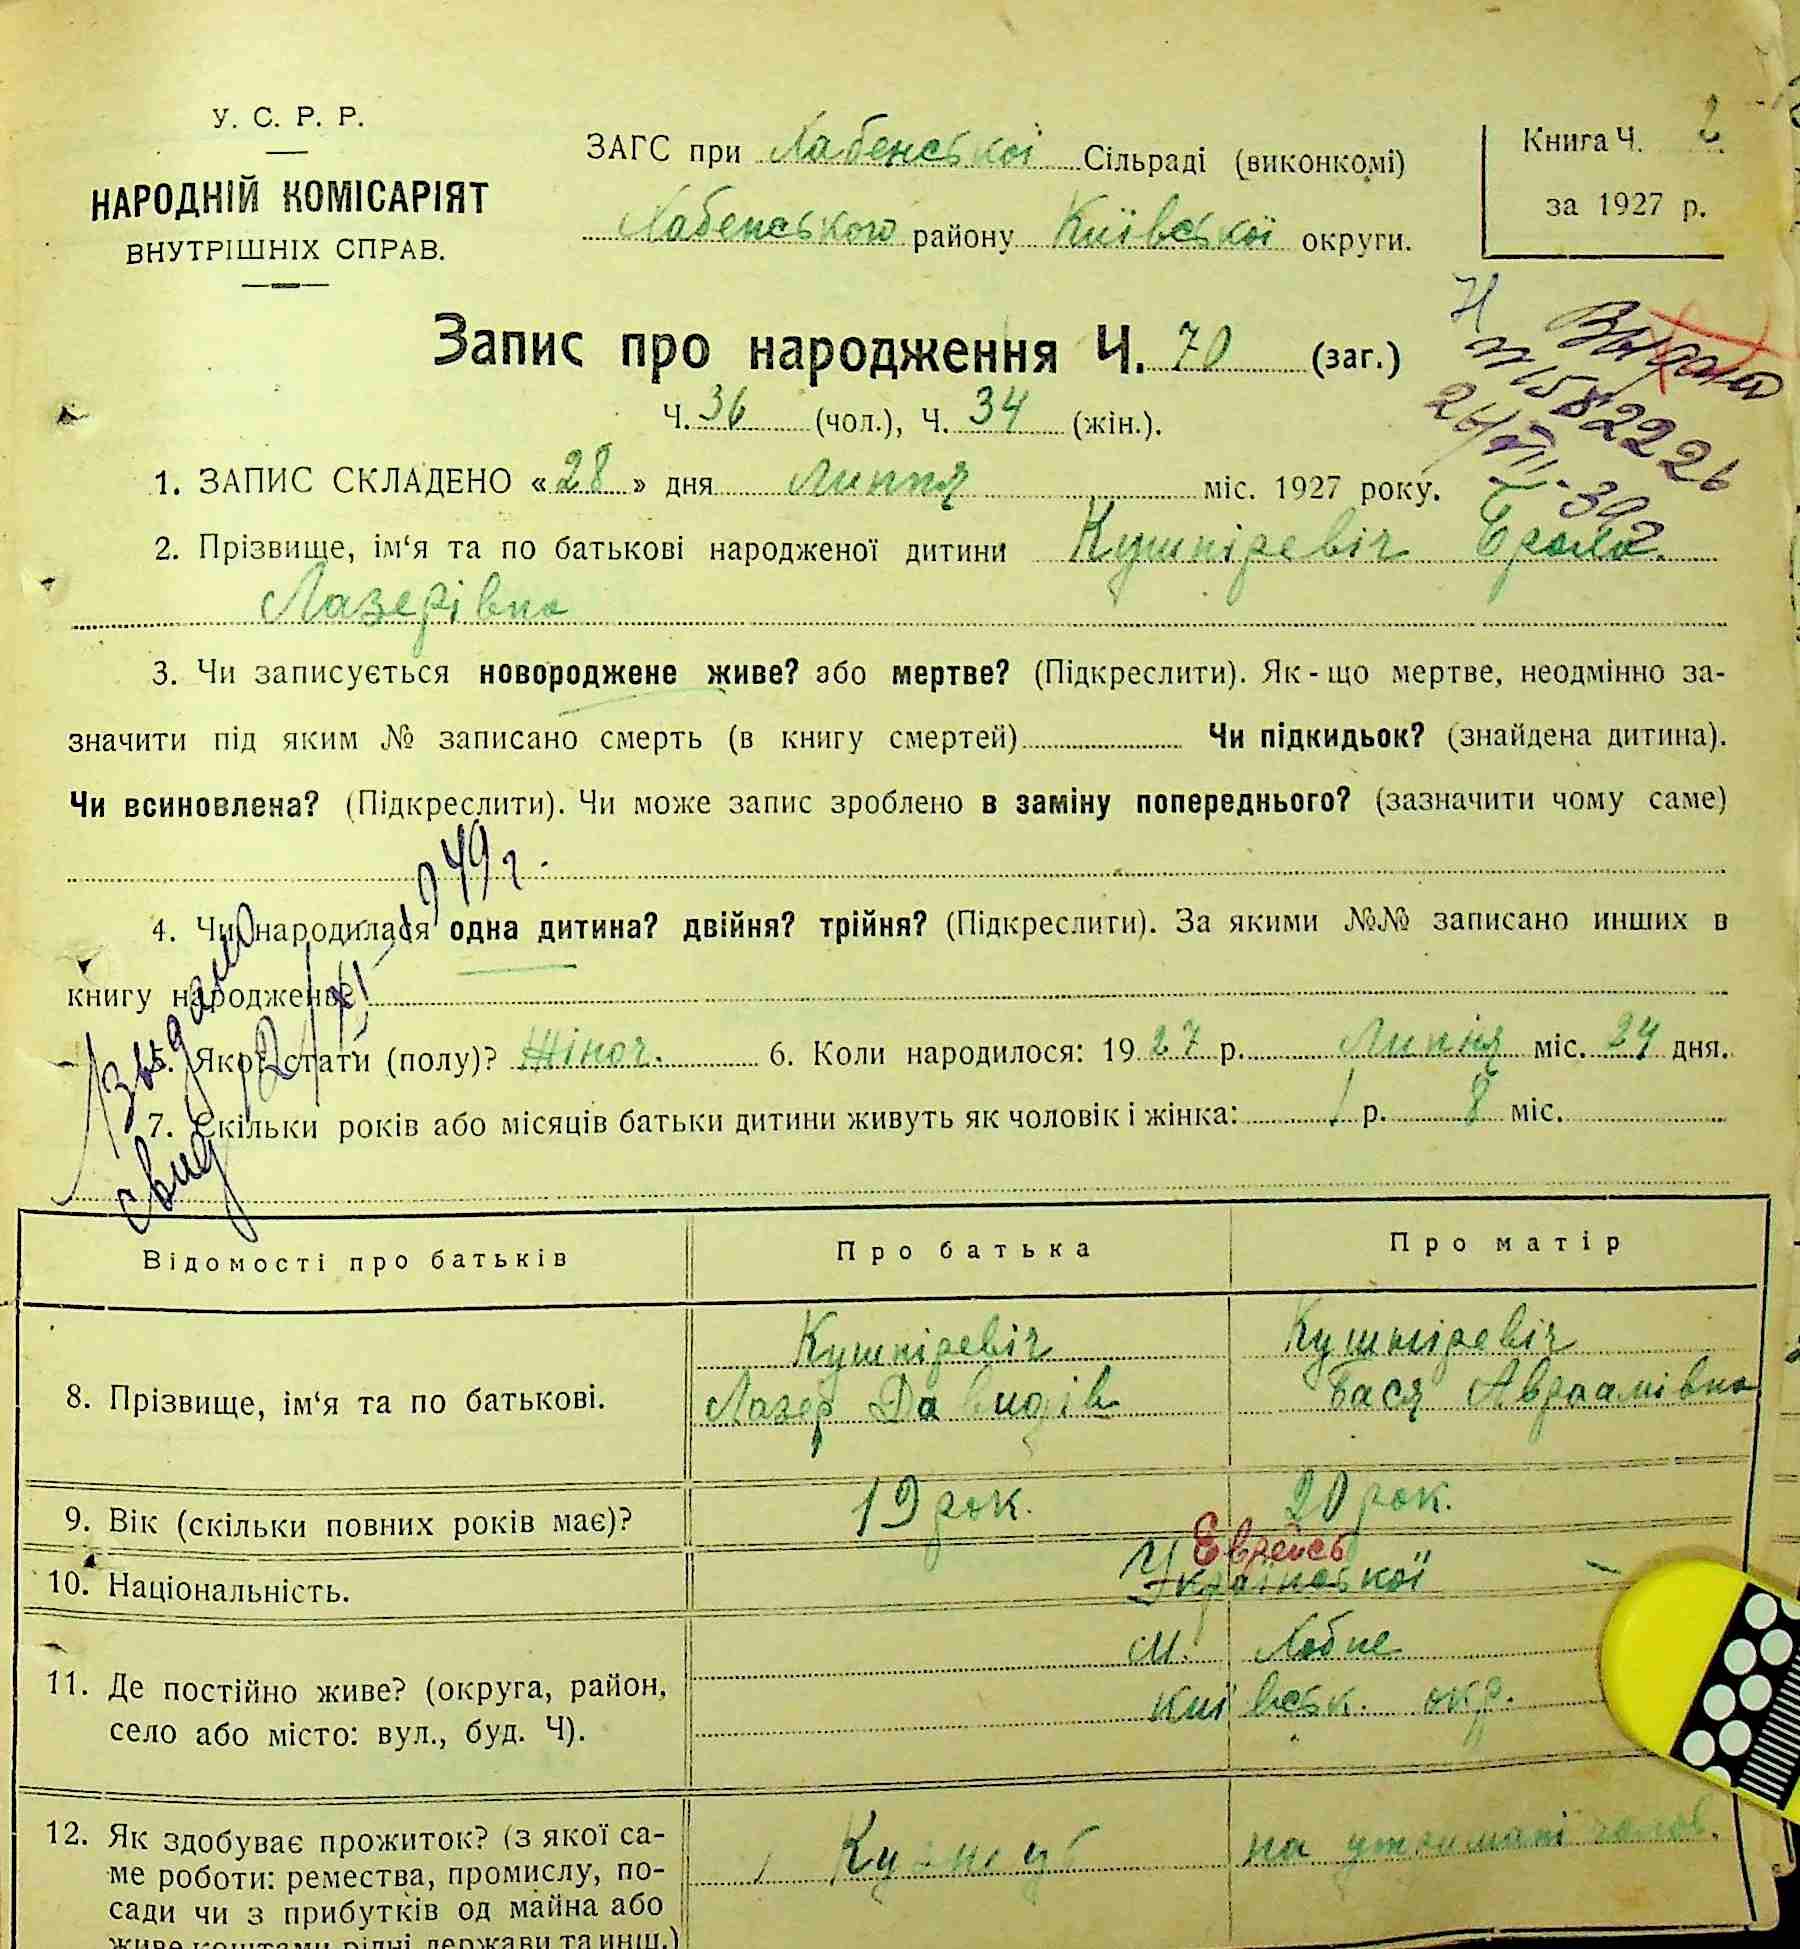 У. С. Р. Р.
НАРОДНІЙ КОМІСАРІЯТ
ВНУТРІШНІХ СПРАВ.
ЗАГС при Хабенської Сільраді (виконкомі)
Хабенського району Київської округи.
Книга Ч. 2
за 1927 р.
Запис про народження Ч. 70 (заг.)
Ч. 36 (чол.), Ч. 34 (жін.).
1. ЗАПИС СКЛАДЕНО «28» дня Липня міс. 1927 року.
2. Прізвище, ім‘я та по батькові народженої дитини Кушніревіч
Лазерівна
3. Чи записується новороджене живе? або мертве? (Підкреслити). Як-що мертве, неодмінно за-
значити під яким № записано смерть (в книгу смертей) Чи підкидьок? (знайдена дитина).
Чи всиновлена? (Підкреслити). Чи може запис зроблено в заміну попереднього? (зазначити чому саме)
4. Чи народилася одна дитина? двійня? трійня? (Підкреслити). За якими №№ записано инших в
книгу народженнє
5. Якої стати (полу)? Жіноч. 6. Коли народилося: 1927 р. Липня міс. 24 дня.
7. Скільки років або місяців батьки дитини живуть як чоловік і жінка: 1 р. 8 міс.
Відомості про батьків
Про батька
Про матір
8. Прізвище, ім‘я та по батькові.
Кушніревіч
Лазер Давидів
Кушніревіч
Бася Авраамівна
9. Вік (скільки повних років має)?
19 рок.
20 рок.
10. Національність.
Еврейсь
Української
11. Де постійно живе? (округа, район,
село або місто: вул., буд. Ч).
м. Хабне
київськ. окр.
12. Як здобуває прожиток? (з якої са-
ме роботи: ремества, промислу, по-
сади чи з прибутків од майна або
живе коштами рідні, держави та инш.)
Кузнець
на утримані чолов.